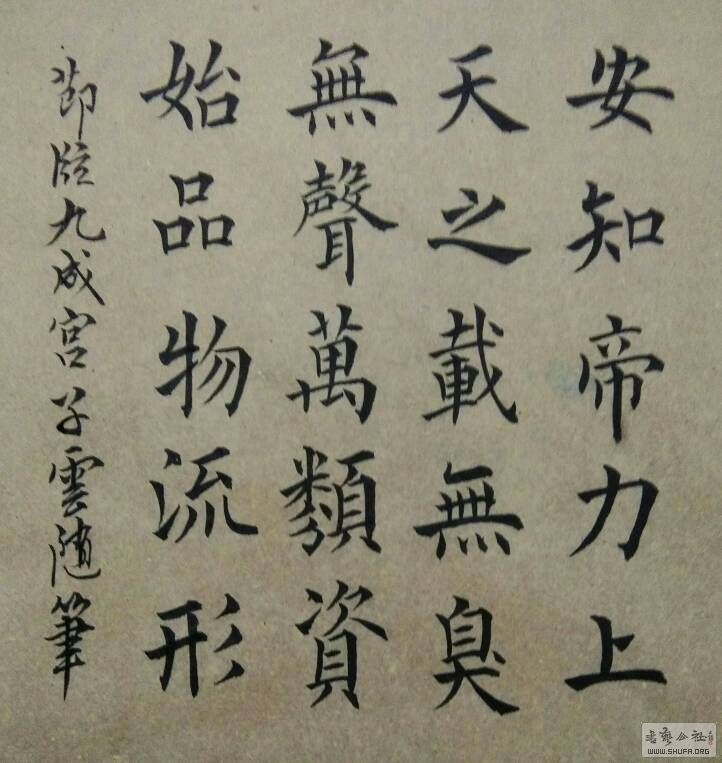 安知帝力上
天之載無臭
無聲萬類資
始品物流形
節臨九成宮子雲随筆
WWW.SHUFA.ORG